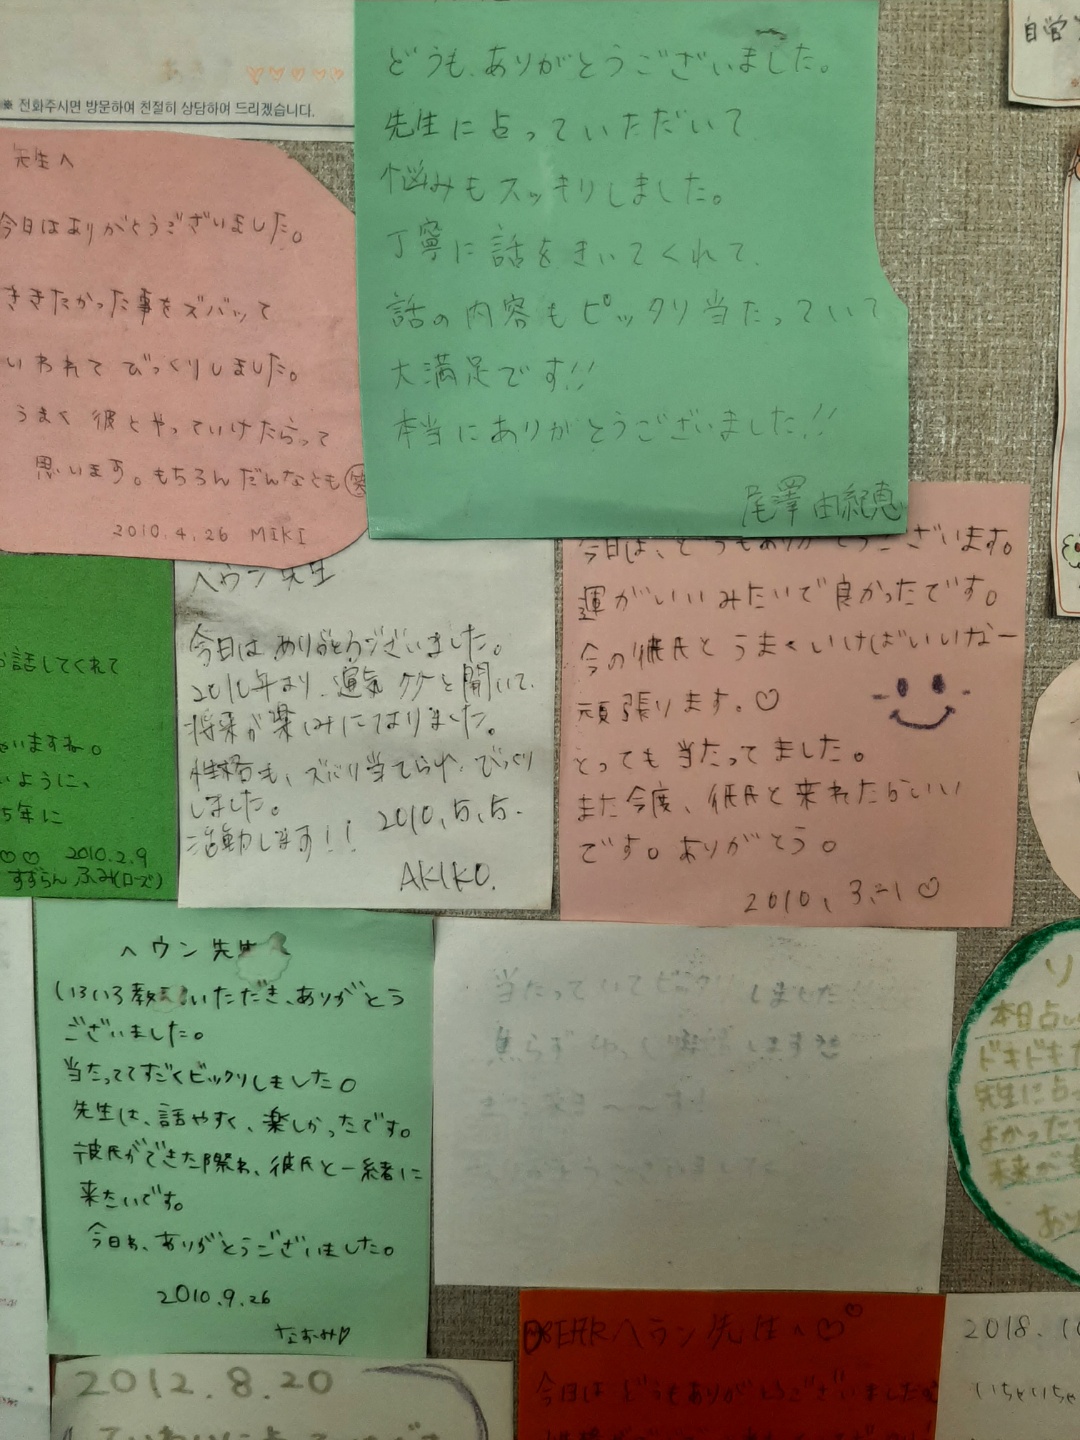 ※ 전화주시면 방문하여 친절히 상담하여 드리겠습니다.
自営
先生へ
今日はありがとうございました。
ききたかった事をズバッて
いわれてびっくりしました。
うまく彼とやっていけたらって
思います。もちろんだんなとも笑
2010.4.26 MIKI
どうも、ありがとうございました。
先生に占っていただいて
悩みもスッキリしました。
丁寧に話をきいてくれて、
話の内容もピッタリ当たっていて
大満足です!!
本当にありがとうございました!!
尾澤由紀恵
話してくれて
いますね。
いように、
5年に
♡♡ 2010.2.9
すずらん ふみ(ローズ)
ヘウン先生
今日はありがとうございました。
2010年より、運気 と聞いて、
将来が楽しみになりました。
性格も、ズバリ当てられ、びっくり
しました。
活動します!!
2010.5.5.
AKIKO.
今日は、どうもありがとうございます。
運がいいみたいで良かったです。
今の彼氏とうまくいけばいいなー
頑張ります。♡
とっても当たってました。
また今度、彼氏と来れたらいい
です。ありがとう。
2010. 3. 21 ♡
ヘウン先生へ
いろいろ教えいただき、ありがとう
ございました。
当たっててすごくビックリしました。
先生は、話やすく、楽しかったです。
彼氏ができた際わ、彼氏と一緒に
来たいです。
今日わ、ありがとうございました。
2010.9.26
なおみ♡
当たっていてビックリしました
焦らず します
本日占い
ドキドキ
先生に占っ
よかった
未来が
2012.8.20
DEAR ヘウン先生へ♡
今日はどうもありがとうございました
2018.10
いちゃいちゃ